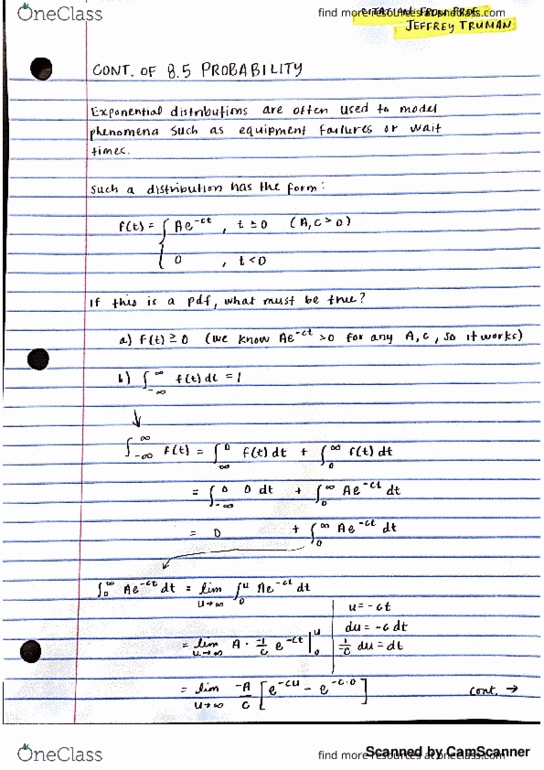 OneClass
find more resources at oneclass.com
NOTATION FROM PROF.
JEFFREY TRUMAN
CONT. OF 8.5 PROBABILITY
Exponential distributions are often used to model
phenomena such as equipment failures or wait
times.
Such a distribution has the form:
f(t) = { Ae^-ct , t ≥ 0 (A, c > 0)
0 , t < 0
If this is a pdf, what must be true?
a) f(t) ≥ 0 (we know Ae^-ct > 0 for any A, c, so it works)
b) ∫_-∞^∞ f(t) dt = 1
∫_-∞^∞ f(t) = ∫_∞^0 f(t) dt + ∫_0^∞ f(t) dt
= ∫_-∞^0 0 dt + ∫_0^∞ Ae^-ct dt
= 0 + ∫_0^∞ Ae^-ct dt
∫_0^∞ Ae^-ct dt = lim u→∞ ∫_0^u Ae^-ct dt
u = -ct
du = -c dt
= lim u→∞ A · -1/c e^-ct |_0^u
1/-c du = dt
= lim u→∞ -A/c [e^-cu - e^-c·0]
cont. →
OneClass
find more resources at oneclass.com
Scanned by CamScanner